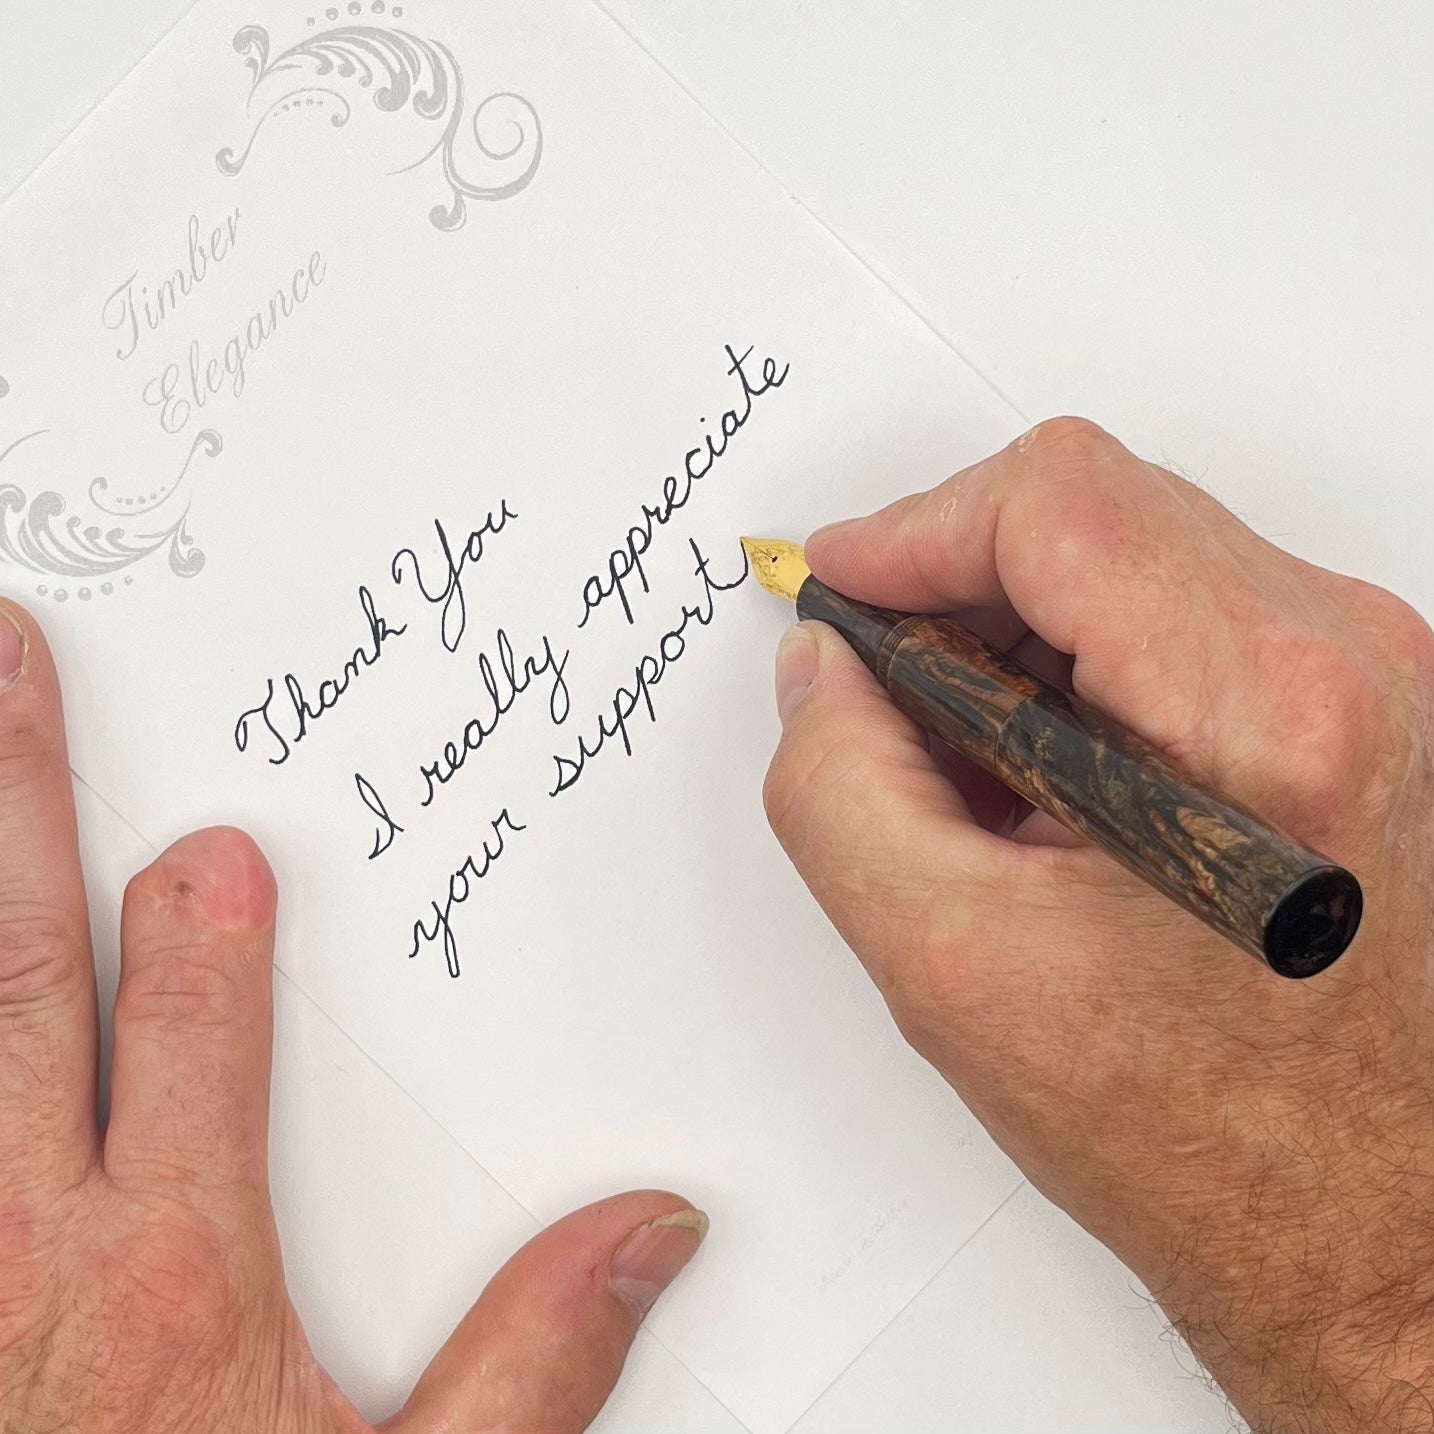 Timber
Elegance
Thank You
I really appreciate
your support